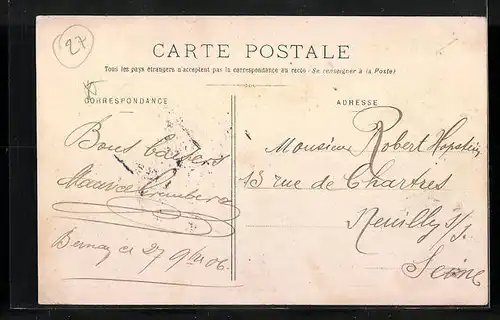 27
CARTE POSTALE
Tous les pays étrangers n'acceptent pas la correspondance au recto (Se renseigner à la Poste)
CORRESPONDANCE
ADRESSE
Bons baisers
Maurice
Bernay ce 27 9bre 06
Monsieur Robert
13 rue de Chartres
Neuilly s/s.
Seine